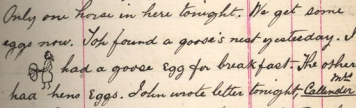 Only one horse in here tonight. We get some
eggs now. Top found a goose's nest yesterday. I
had a goose egg for breakfast. The other
had hens eggs. John wrote letter tonight Mrs Callender